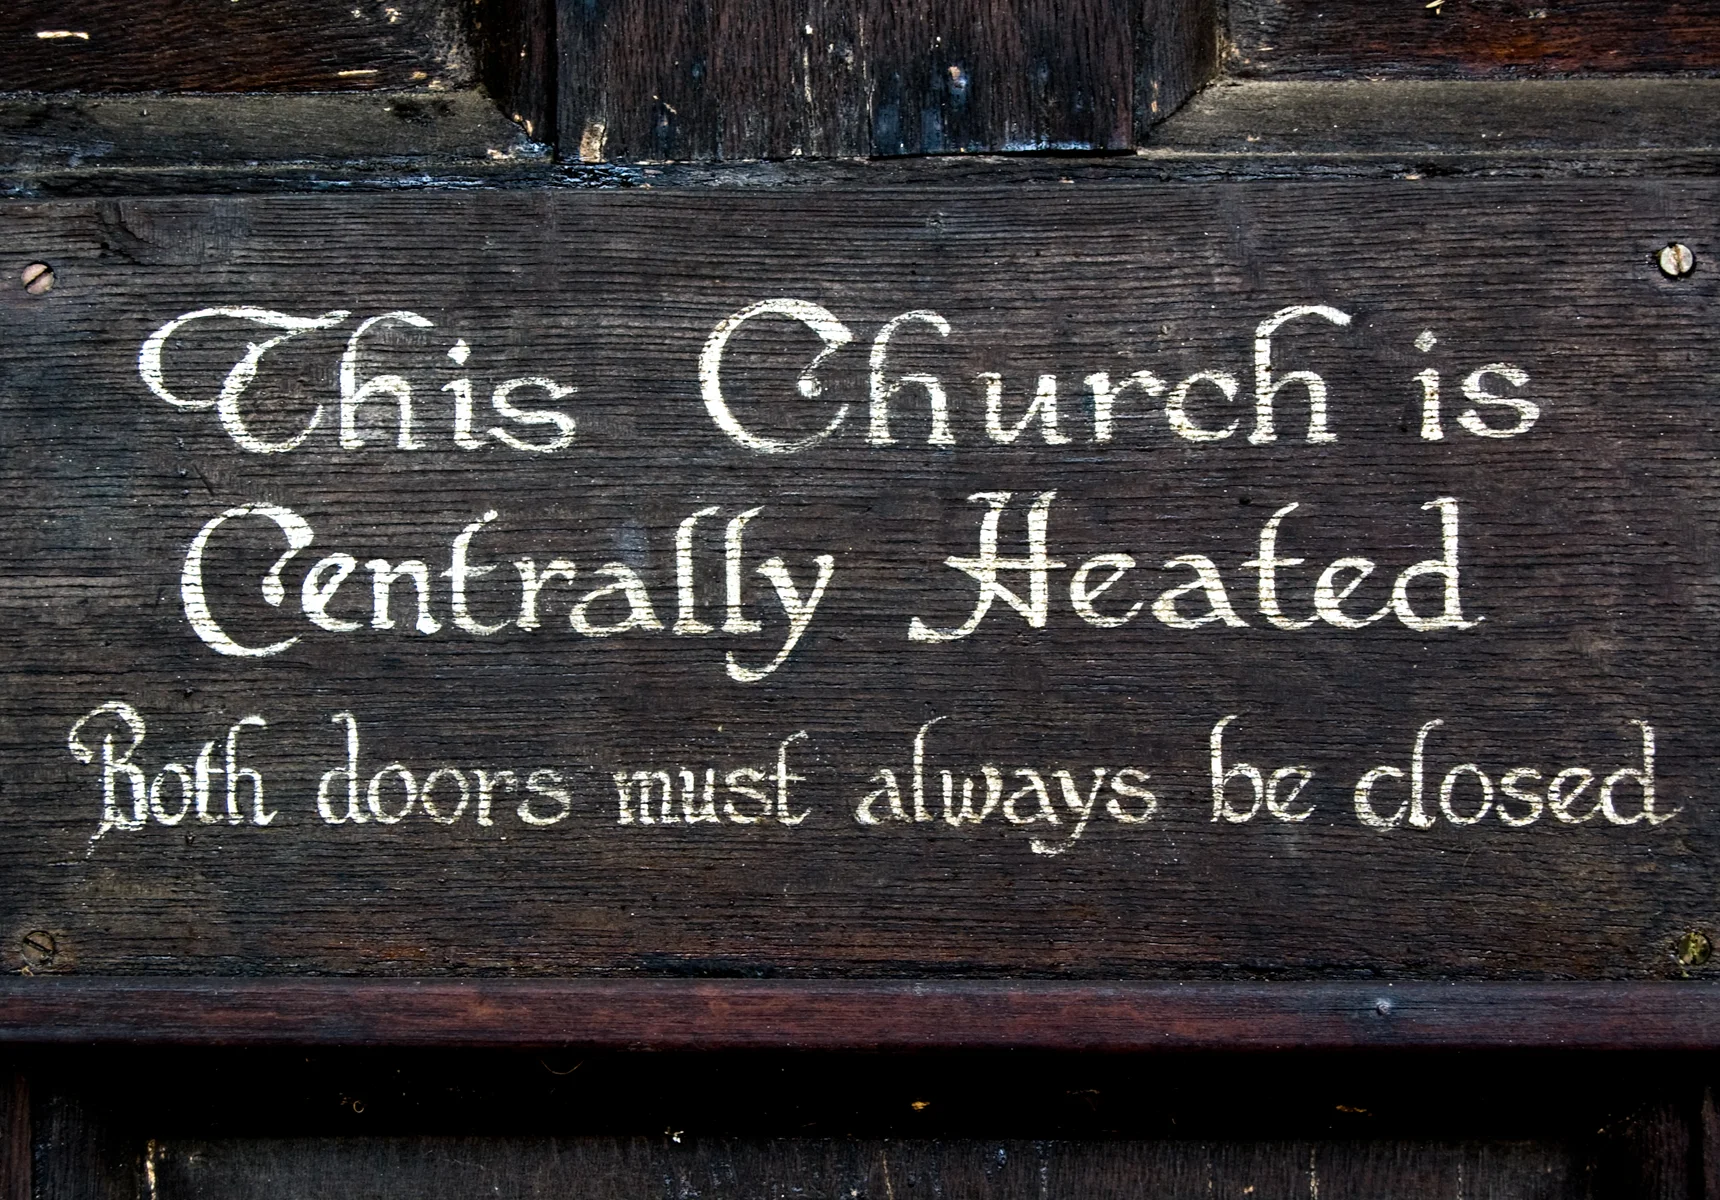 This Church is
Centrally Heated
Both doors must always be closed